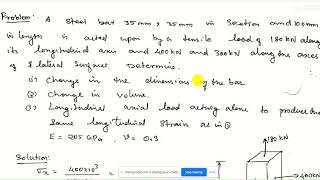 Problem:- A steel bar 35mm x 35mm in section and 100mm
in length is acted upon by a tensile load of 180kN
along its longitudinal axis and 400kN and 300kN along the axes
of lateral surfaces. Determine.
(i) Change in the dimensions of the bar
(2) Change in volume.
(3) Longitudinal axial load acting alone to produce the
Same longitudinal strain as in (1)
E = 205 GPa, ν = 0.3
180kN
Solution:-
400kN
σx = 400x10³